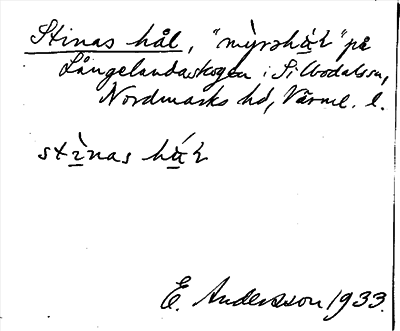 Stinas hål, "mỳrshå̀l" på
Långelandaskogen i Silbodals sn,
Nordmarks hd, Värml. l.
stı̀nas hål
E. Andersson 1933.